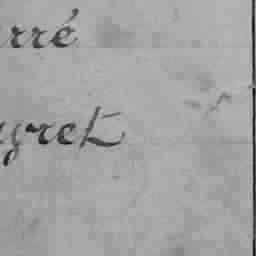 rré
gret